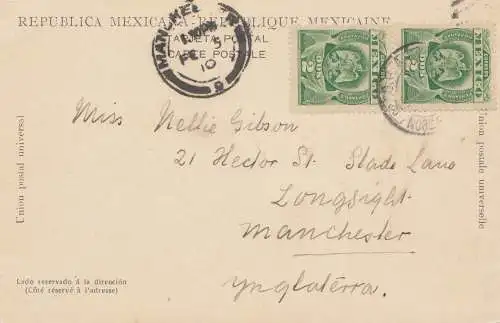 REPUBLICA MEXICANA-REPUBLIQUE MEXICAINE
TARJETA POSTAL
CARTE POSTALE
FE 5
10
9
MEXICO
2
MEXICO
2
Miss Nellie Gibson
21 Hector St. Slade Lane
Longsight
Manchester
Ynglatérra.
Union postal universal
Union postale universelle
Lado reservado á la dirección
(Côté réservé à l'adresse)